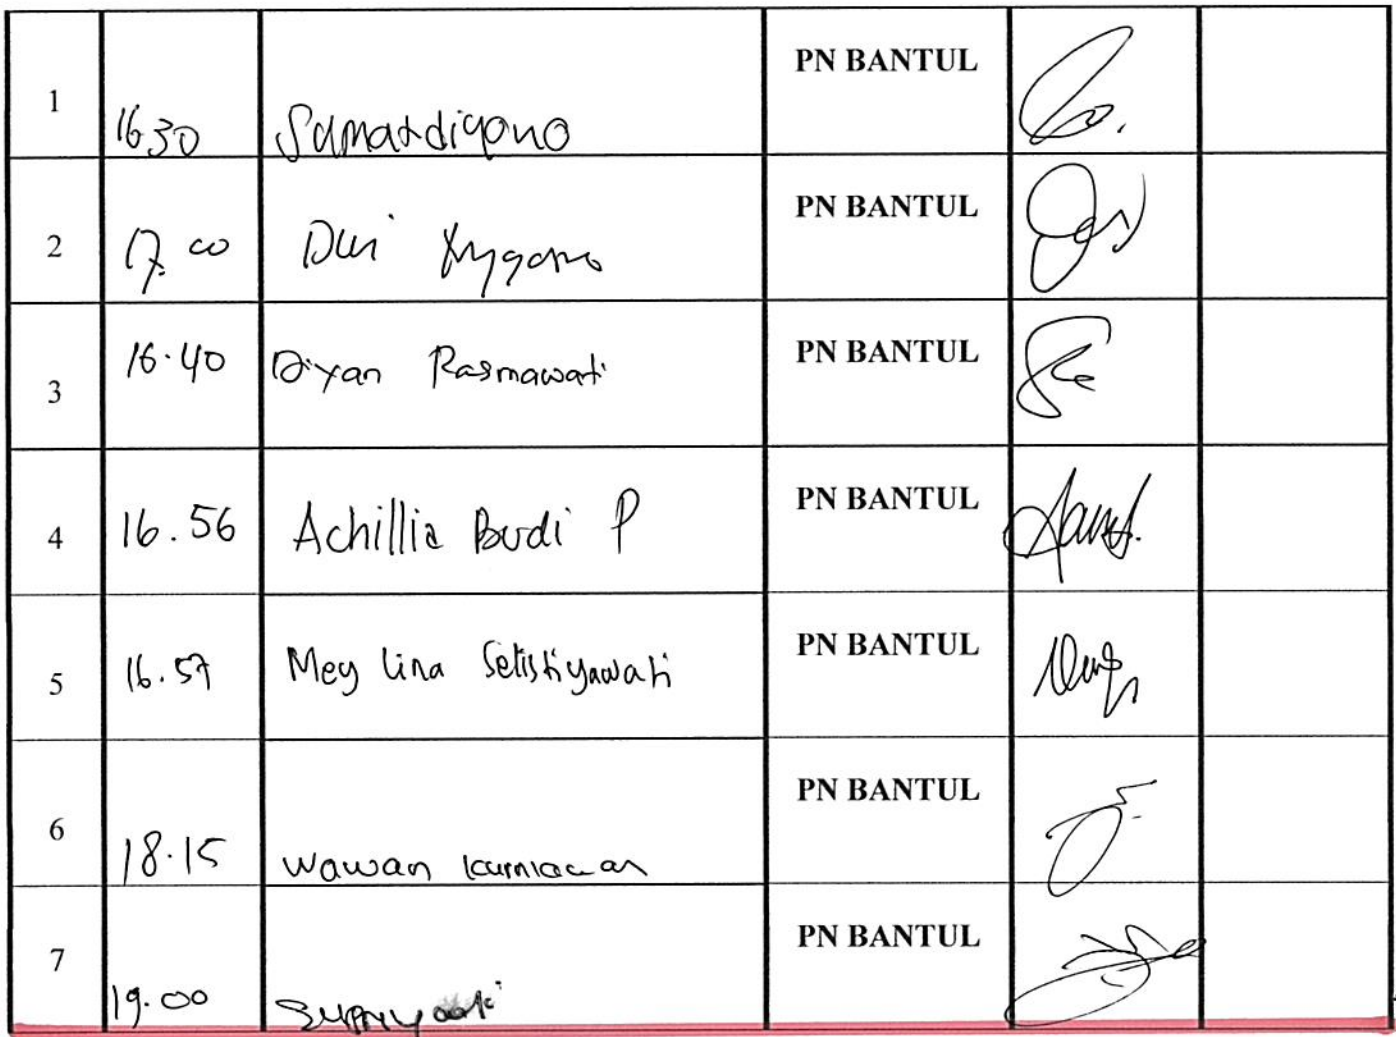 1 16.30 Sumardiyono PN BANTUL
2 17.00 Dwi PN BANTUL
3 16.40 Diyan Rasmawati PN BANTUL
4 16.56 Achillia Budi P PN BANTUL
5 16.57 Mey Lina Setistiyawati PN BANTUL
6 18.15 Wawan Kurniawan PN BANTUL
7 19.00 PN BANTUL